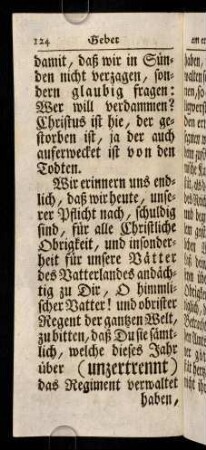 124 Gebet
damit, daß wir in Sün-
den nicht verzagen, son-
dern glaubig fragen:
Wer will verdammen?
Christus ist hie, der ge-
storben ist, ja der auch
auferwecket ist von den
Todten.
Wir erinnern uns end-
lich, daß wir heute, unse-
rer Pflicht nach, schuldig
sind, für alle Christliche
Obrigkeit, und insonder-
heit für unsere Vätter
des Vatterlandes andäch-
tig zu Dir, O himmli-
scher Vatter! und obrister
Regent der gantzen Welt,
zu bitten, daß Du sie sämt-
lich, welche dieses Jahr
über (unzertrennt)
das Regiment verwaltet
haben,